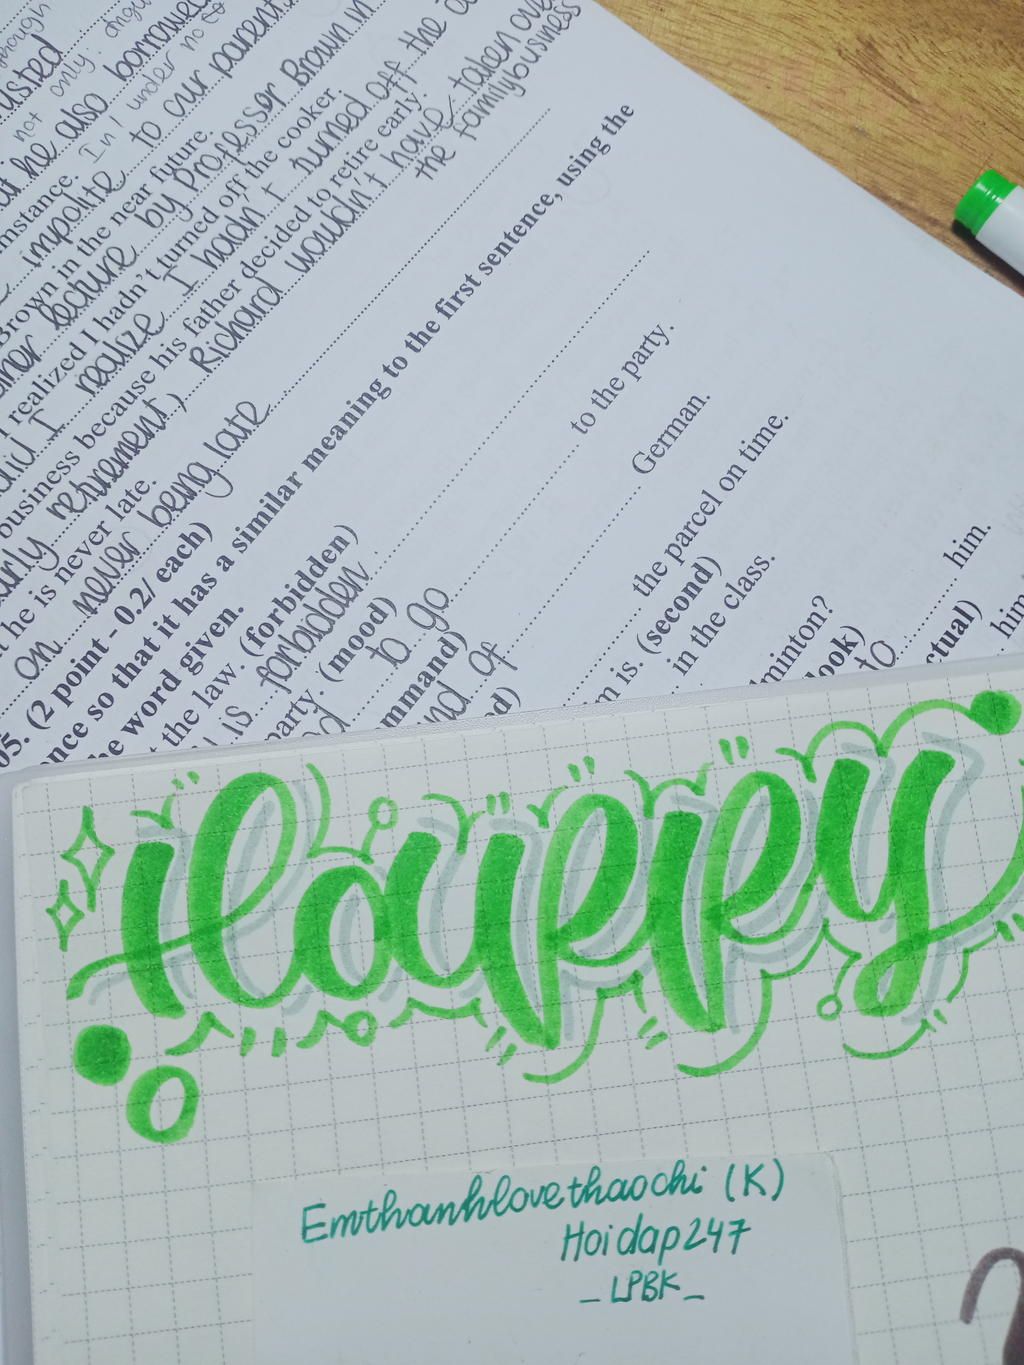 not only
he also borrowed
mstance. In / under no
impolite to our parent
Brown in the near future.
lecture by Professor Brown in
I realized I hadn't turned off the cooker.
did I realize I hadn't turned off the
business because his father decided to retire early.
early retirement, Richard wouldn't have taken over
the family business
he is never late.
on never being late
05. (2 point - 0.2/ each)
ence so that it has a similar meaning to the first sentence, using the
he word given.
the law. (forbidden)
is forbidden
party. (mood)
to go to the party.
mmand)
nd of German.
ed)
the parcel on time.
m is. (second)
in the class.
dminton?
look)
to him.
ctual)
him
Happy
Emthanhlovethaochi (K)
Hoidap247
_LPBK_